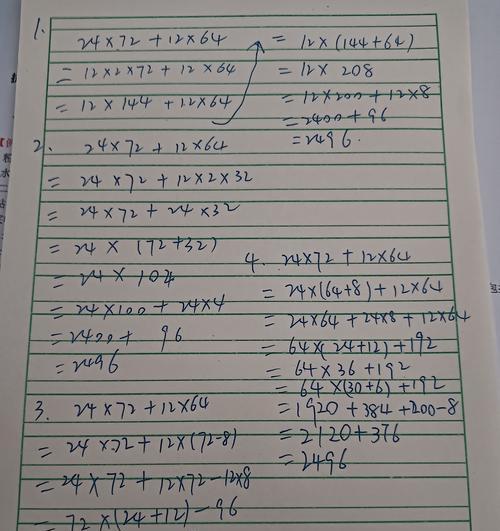 1.
24×72+12×64
=12×2×72+12×64
=12×144+12×64
=12×(144+64)
=12×208
=12×200+12×8
=2400+96
=2496.
2. 24×72+12×64
=24×72+12×2×32
=24×72+24×32
=24×(72+32)
=24×104
=24×100+24×4
=2400+96
=2496
3. 24×72+12×64
=24×72+12×(72-8)
=24×72+12×72-12×8
=72×(24+12)-96
4. 24×72+12×64
=24×(64+8)+12×64
=24×64+24×8+12×64
=64×(24+12)+192
=64×36+192
=64×(30+6)+192
=1920+384+200-8
=2120+376
=2496